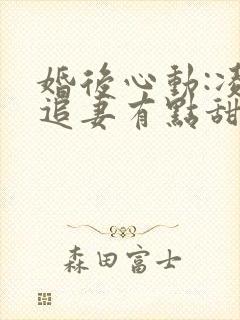 婚後心動:凌
追妻有點甜
森田富士